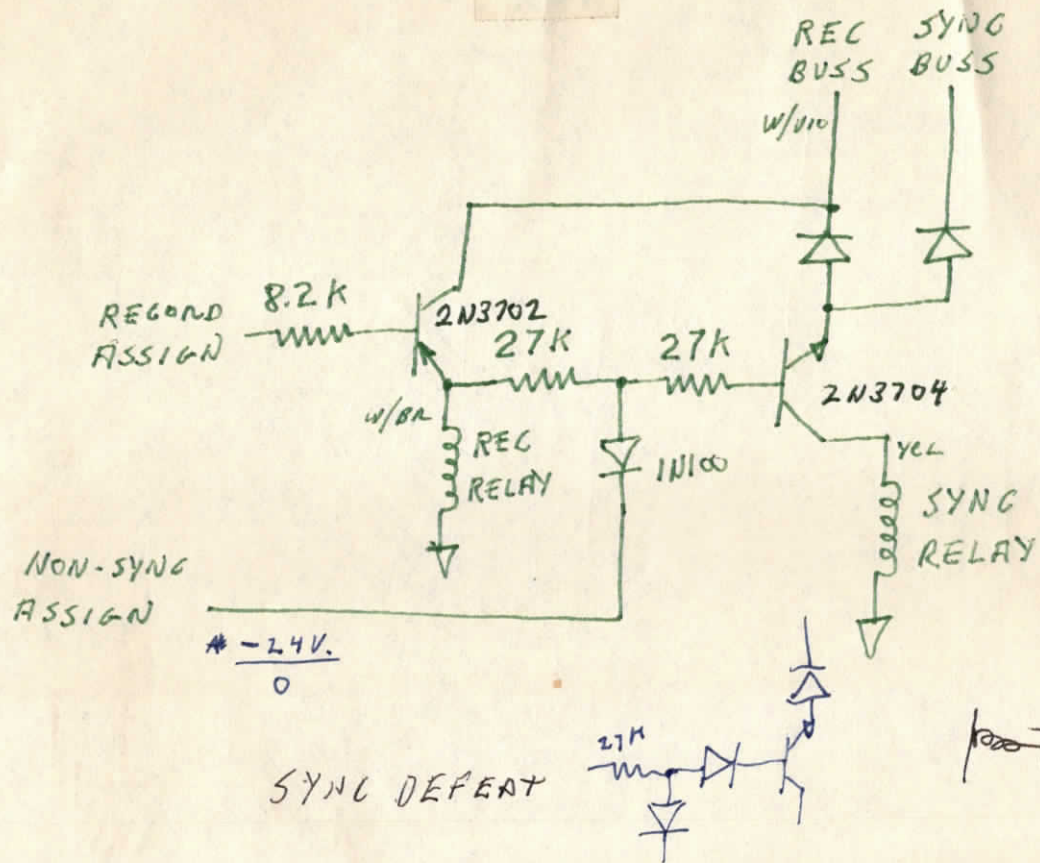 REC
BUSS
SYNC
BUSS
W/VIO
RECORD
ASSIGN
8.2K
2N3702
27K
27K
2N3704
W/BR
REC
RELAY
1N100
YEL
SYNC
RELAY
NON-SYNC
ASSIGN
-24V.
0
27K
SYNC DEFEAT